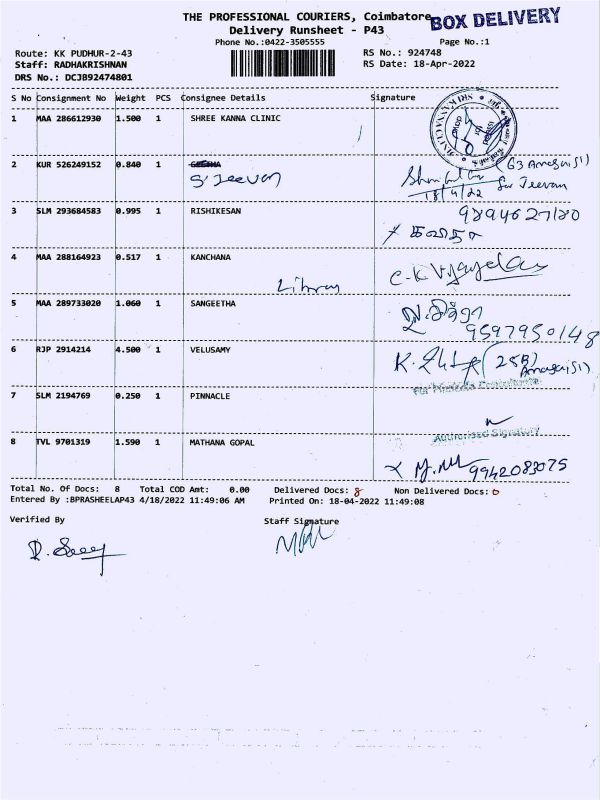 THE PROFESSIONAL COURIERS, Coimbatore
BOX DELIVERY
Delivery Runsheet - P43
Phone No.:0422-3505555
Page No.:1
Route: KK PUDHUR-2-43
RS No.: 924748
Staff: RADHAKRISHNAN
RS Date: 18-Apr-2022
DRS No.: DCJB92474801
S No Consignment No Weight PCS Consignee Details Signature
1 MAA 286612930 1.500 1 SHREE KANNA CLINIC
2 KUR 526249152 0.840 1 GEETHA
S Jeevan
(63 Annagaisi)
18/4/22 for Jeevan
3 SLM 293684583 0.995 1 RISHIKESAN
9894627180
4 MAA 288164923 0.517 1 KANCHANA
Library
5 MAA 289733020 1.060 1 SANGEETHA
9597950148
6 RJP 2914214 4.500 1 VELUSAMY
7 SLM 2194769 0.250 1 PINNACLE
Authorised Signatory
8 TVL 9701319 1.590 1 MATHANA GOPAL
9942083075
Total No. Of Docs: 8 Total COD Amt: 0.00 Delivered Docs: 8 Non Delivered Docs: 0
Entered By :BPRASHEELAP43 4/18/2022 11:49:06 AM Printed On: 18-04-2022 11:49:08
Verified By
Staff Signature